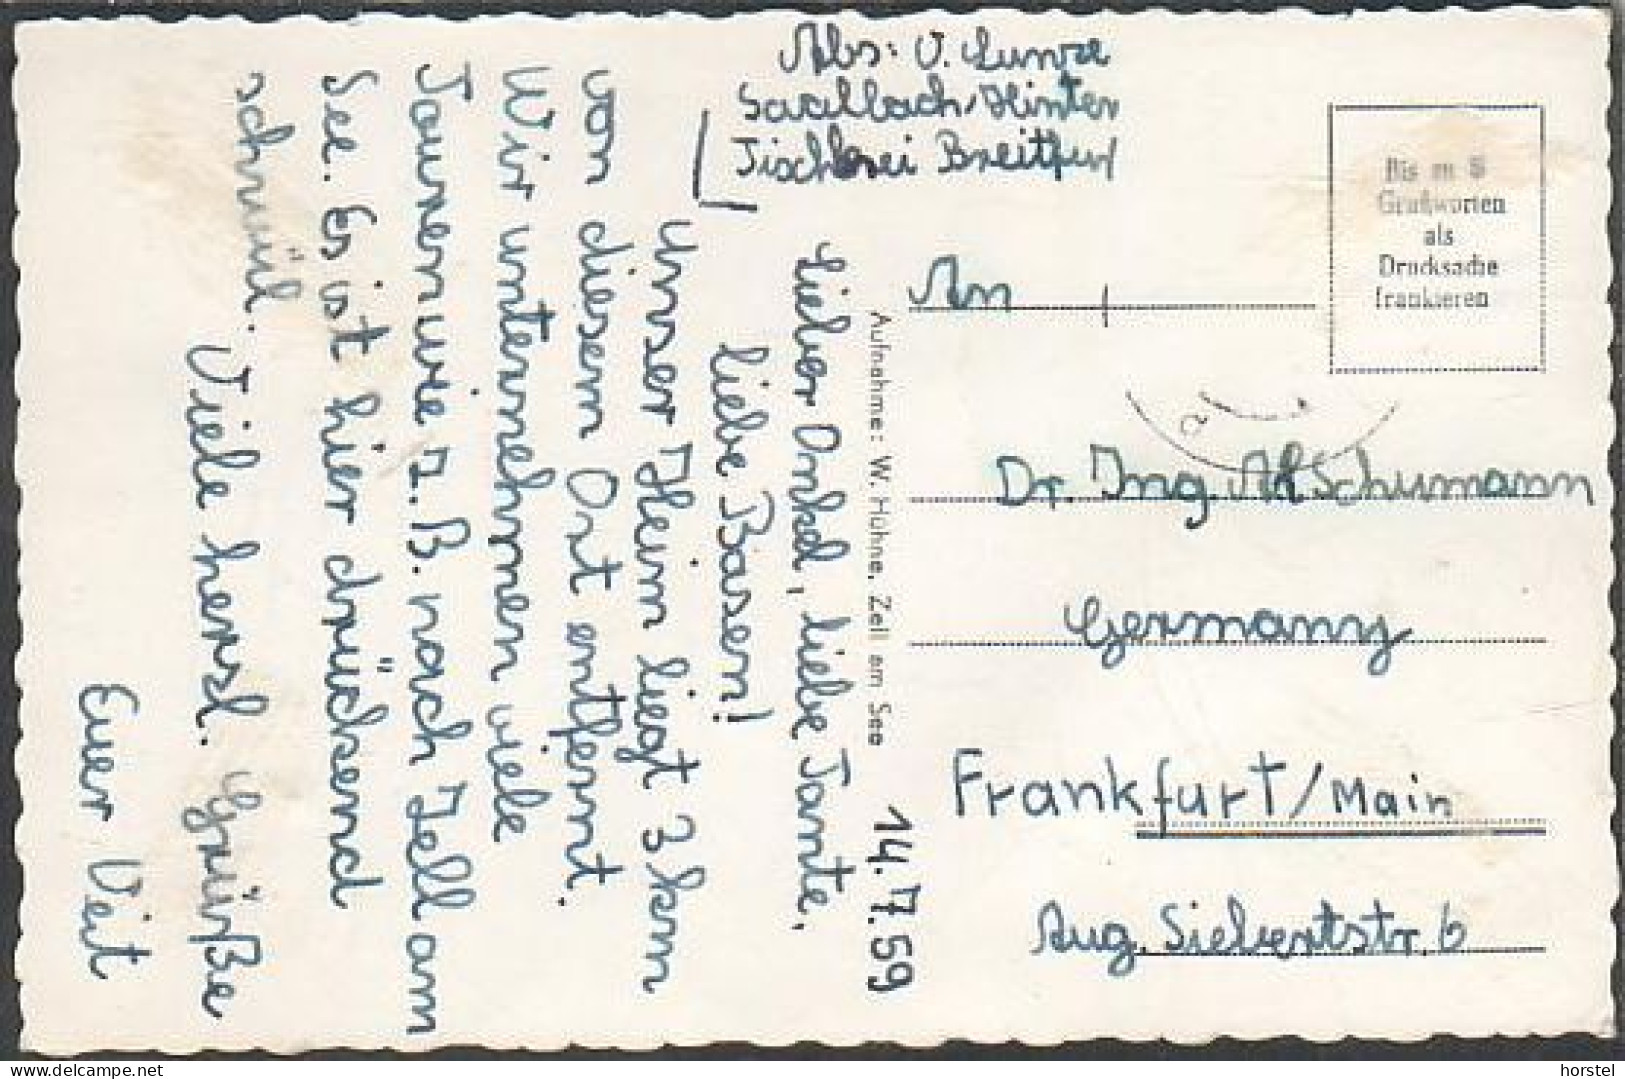 Abs: V. Lunze
Saalbach-Hinter
Tischlerei Breitfuß
Bis zu 5
Grußworten
als
Drucksache
frankieren
An
Dr. Ing. Al Schumann
Germany
Frankfurt/Main
Aug. Siebertstr. 6
Aufnahme: W. Hühne, Zell am See
14.7.59
Lieber Onkel, liebe Tante,
liebe Basen!
Unser Heim liegt 3 km
von diesem Ort entfernt.
Wir unternehmen viele
Touren wie z.B. nach Zell am
See. Es ist hier drückend
schwül.
Viele herzl. Grüße
Euer Veit
horstel